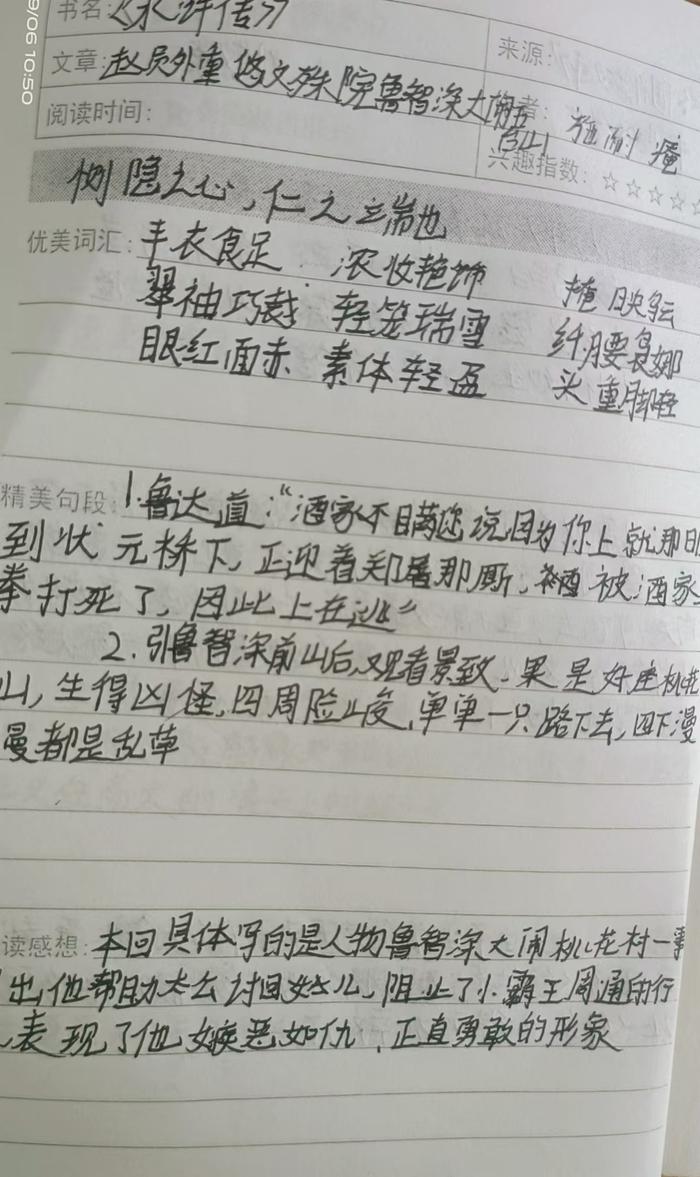 9/06 10:50
书名:《水浒传》
来源:
文章:赵员外重修文殊院鲁智深大闹五台山
者: 施耐庵
阅读时间:
兴趣指数:☆☆☆☆☆
恻隐之心,仁之端也
优美词汇: 丰衣食足 浓妆艳饰 掩映
翠袖巧裁 轻笼瑞雪 纤腰袅娜
眼红面赤 素体轻盈 头重脚轻
精美句段: 1.鲁达道:“洒家不瞒你说,因为你上就那日
到状元桥下,正迎着郑屠那厮,被洒家
拳打死了,因此上在逃”
2.引鲁智深前山后,观看景致。果是好座桃花
山,生得凶怪,四周险峻,单单一只路下去,四下漫
漫都是乱草
读感想: 本回具体写的是人物鲁智深大闹桃花村一事
出,他帮助太公讨回女儿,阻止了小霸王周通的行
表现了他嫉恶如仇,正直勇敢的形象